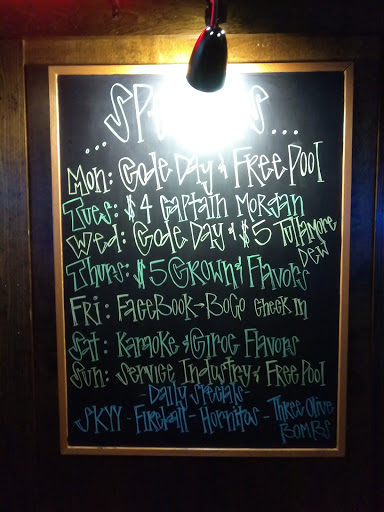 Mon: Code Day & Free Pool
Tues: $4 Captain Morgan
Wed: Code Day & $5 Tullamore
Dew
Thurs: $5 Crown & Flavors
Fri: FaceBook-BOGO check in
Sat: Karaoke & Ciroc Flavors
Sun: Service Industry & Free Pool
-Daily Specials-
SKYY - Fireball - Hornitos - Three Olive
BOMBS